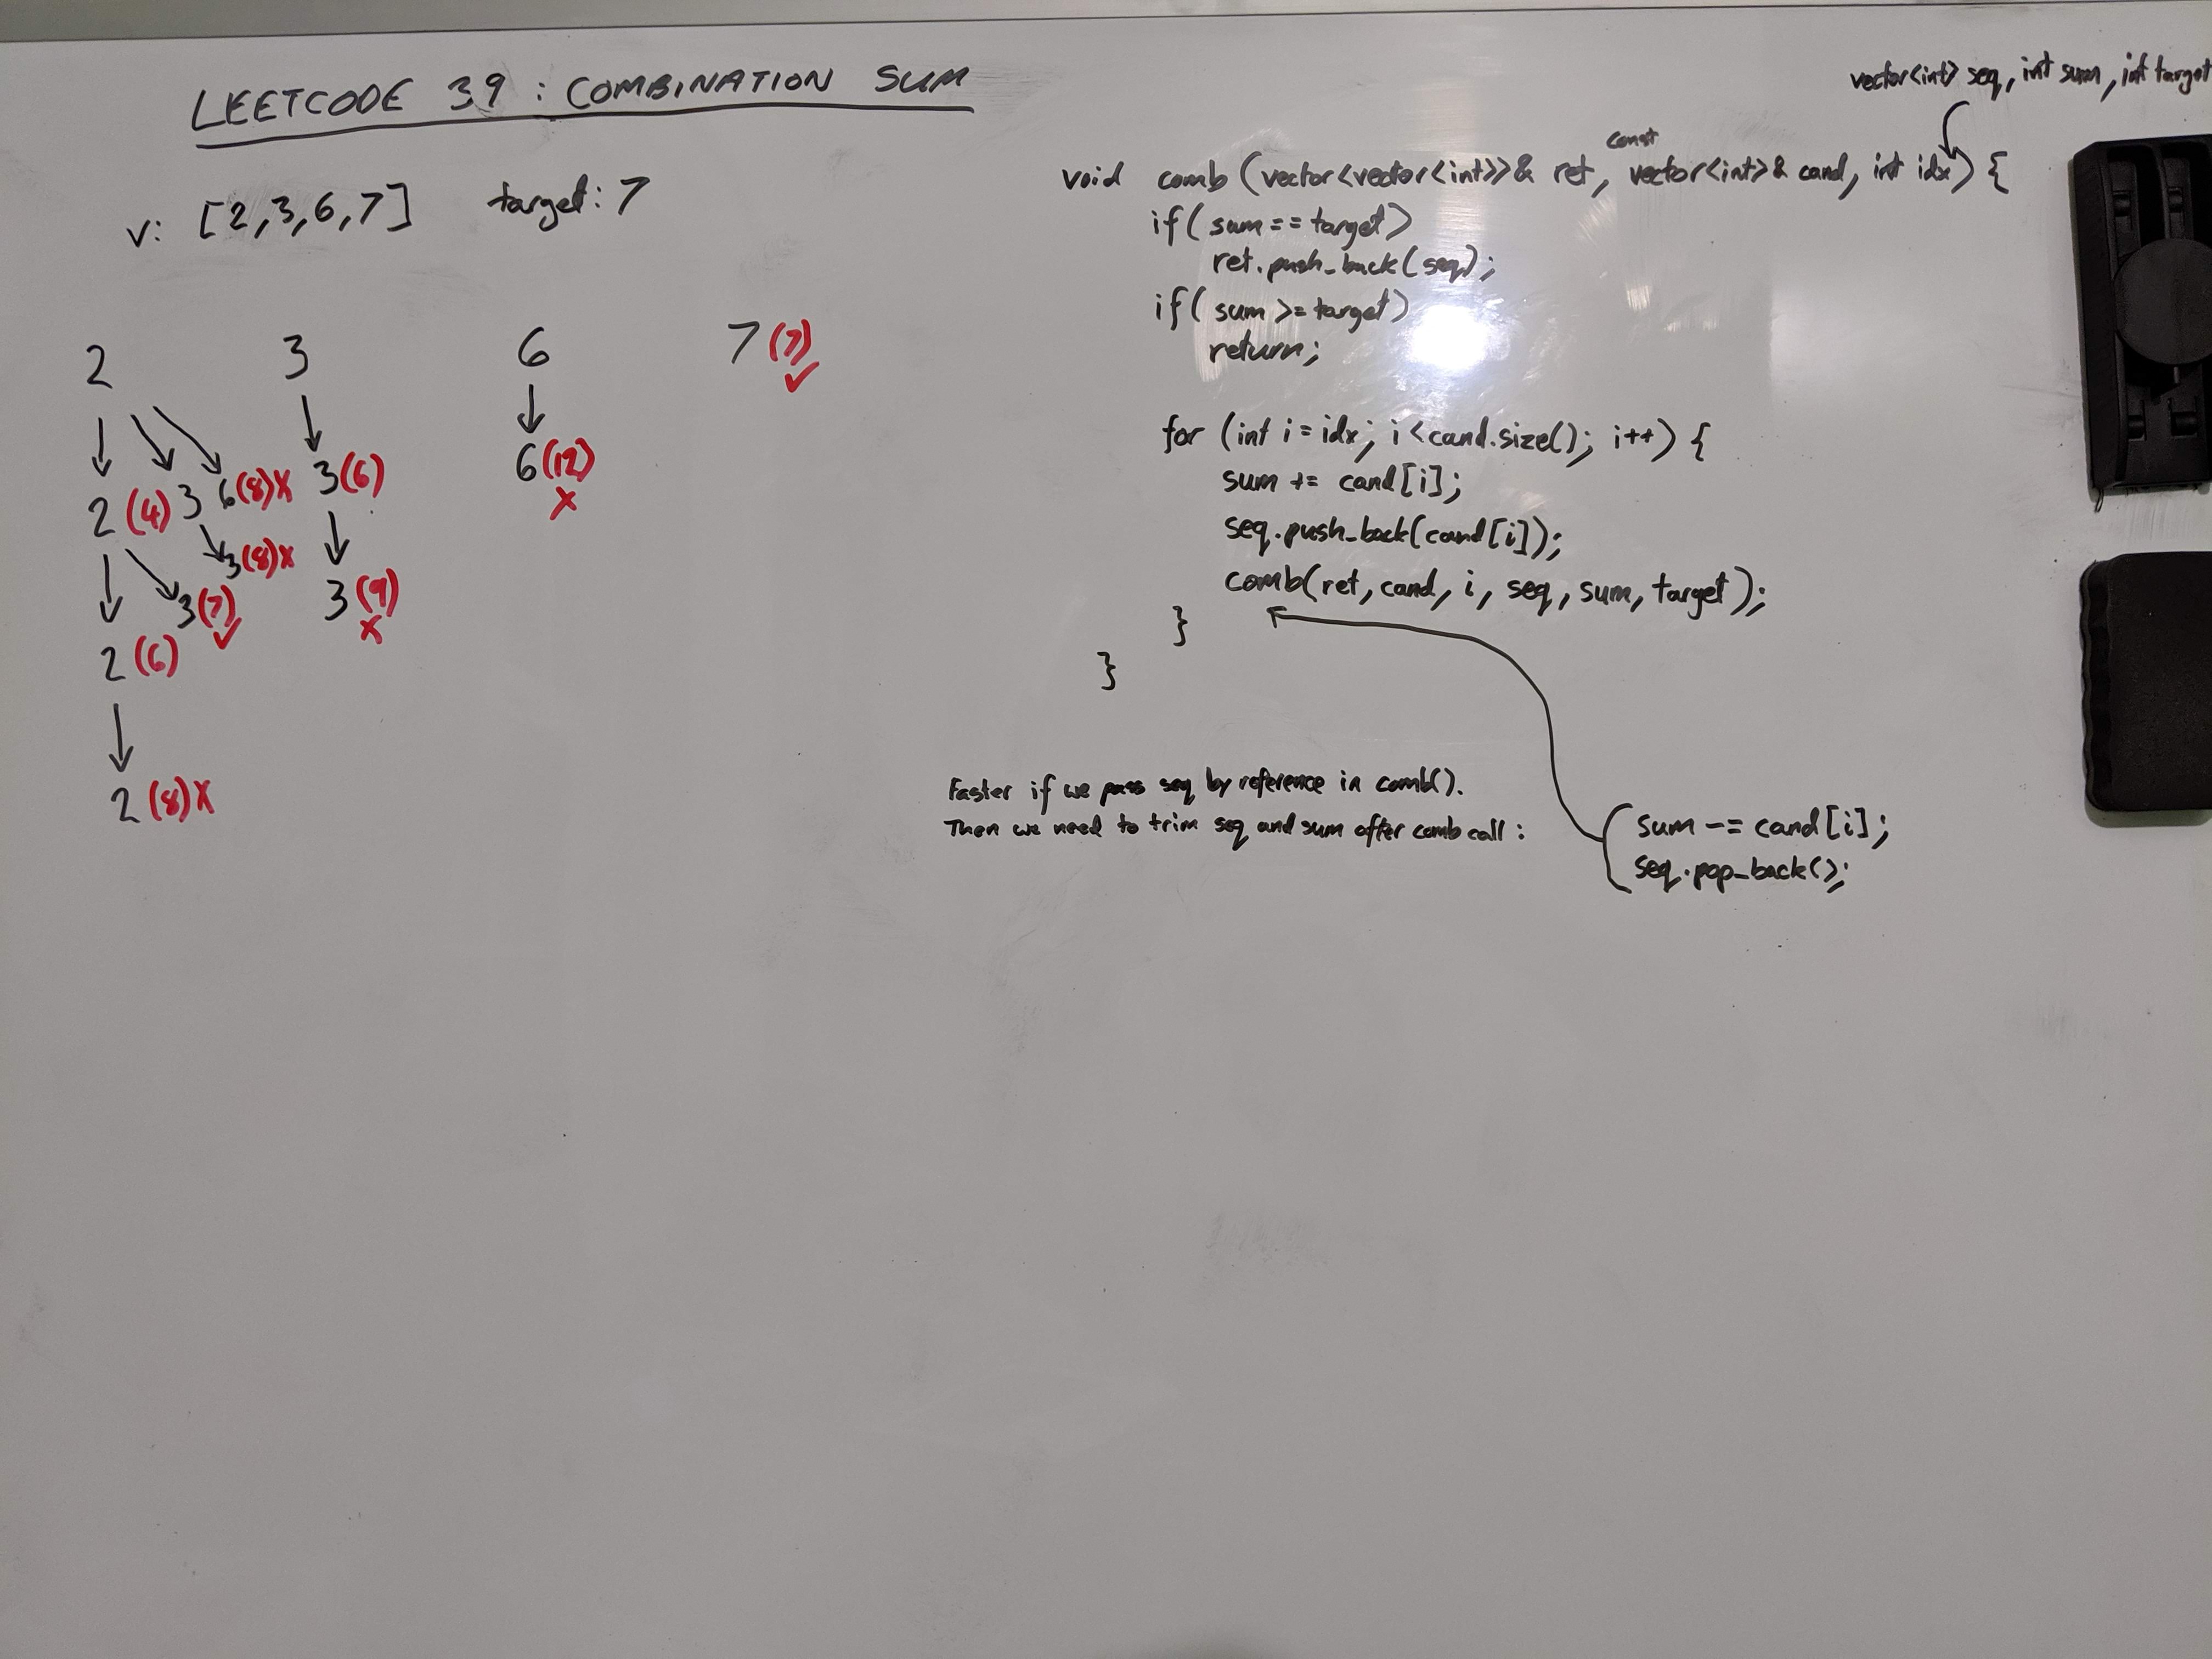 LEETCODE 39 : COMBINATION SUM
v: [2,3,6,7] target: 7
2 3 6 7 (7) ✓
2 (4) 3 6 (8) X 3 (6) 6 (12) X
3 (8) X
2 (6) 3 (7) ✓ 3 (9) X
2 (8) X
vector<int> seq, int sum, int target
const
void comb (vector<vector<int>>& ret, vector<int>& cand, int idx) {
if( sum == target)
ret.push_back(seq);
if( sum >= target)
return;
for (int i = idx; i < cand.size(); i++) {
sum += cand[i];
seq.push_back(cand[i]);
comb(ret, cand, i, seq, sum, target);
}
}
Faster if we pass seq by reference in comb().
Then we need to trim seq and sum after comb call :
sum -= cand[i];
seq.pop_back();